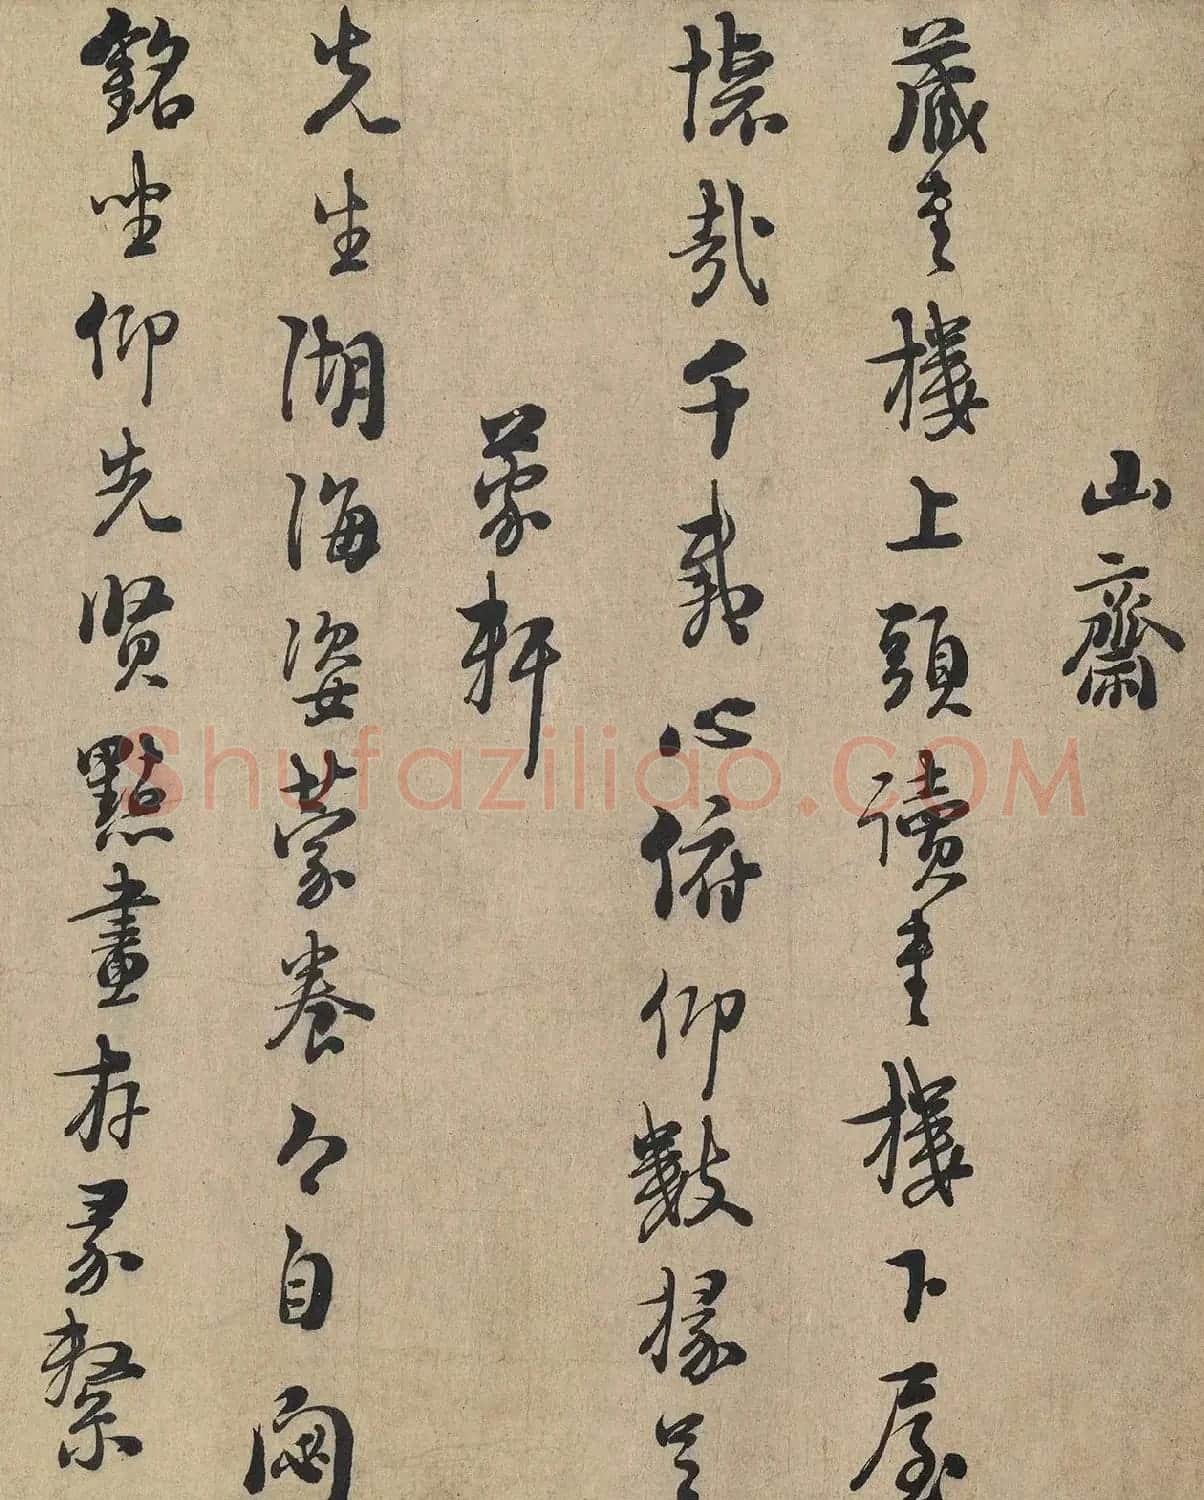 山齋
藏書樓上頭讀書樓下屋
懷哉千載心俯仰數椽足
蒙軒
先生湖海姿蒙養今自閟
銘坐仰先賢點畫存彖繫
Shufaziliao.COM